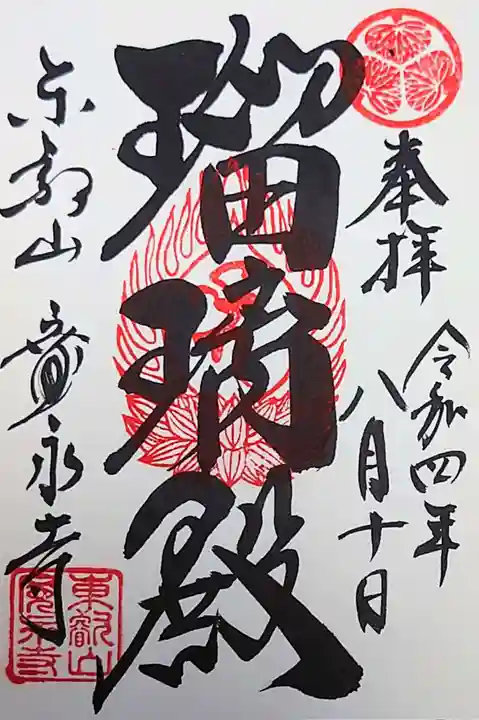 奉拝
令和四年
八月十日
瑠璃殿
東叡山 寛永寺
東叡山
寛永寺